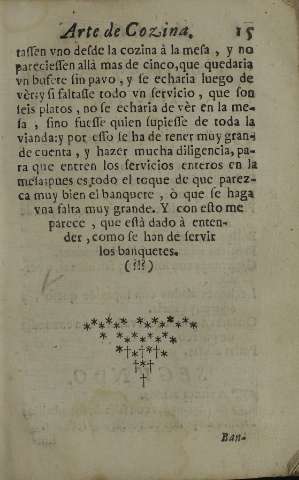 Arte de Cozina. 15
tassen vno desde la cozina à la mesa, y no
pareciessen allà mas de cinco, que quedaria
vn bufete sin pavo, y se echaria luego de
vèr; y si faltasse todo vn servicio, que son
seis platos, no se echaria de vèr en la me-
sa, sino fuesse quien supiesse de toda la
vianda: y por esso se ha de tener muy gran-
de cuenta, y hazer mucha diligencia, pa-
ra que entren los servicios enteros en la
mesa; pues es todo el toque de que parez-
ca muy bien el banquete, ò que se haga
vna falta muy grande. Y con esto me
parece, que està dado à enten-
der, como se han de servir
los banquetes.
(§§§)
Ban-